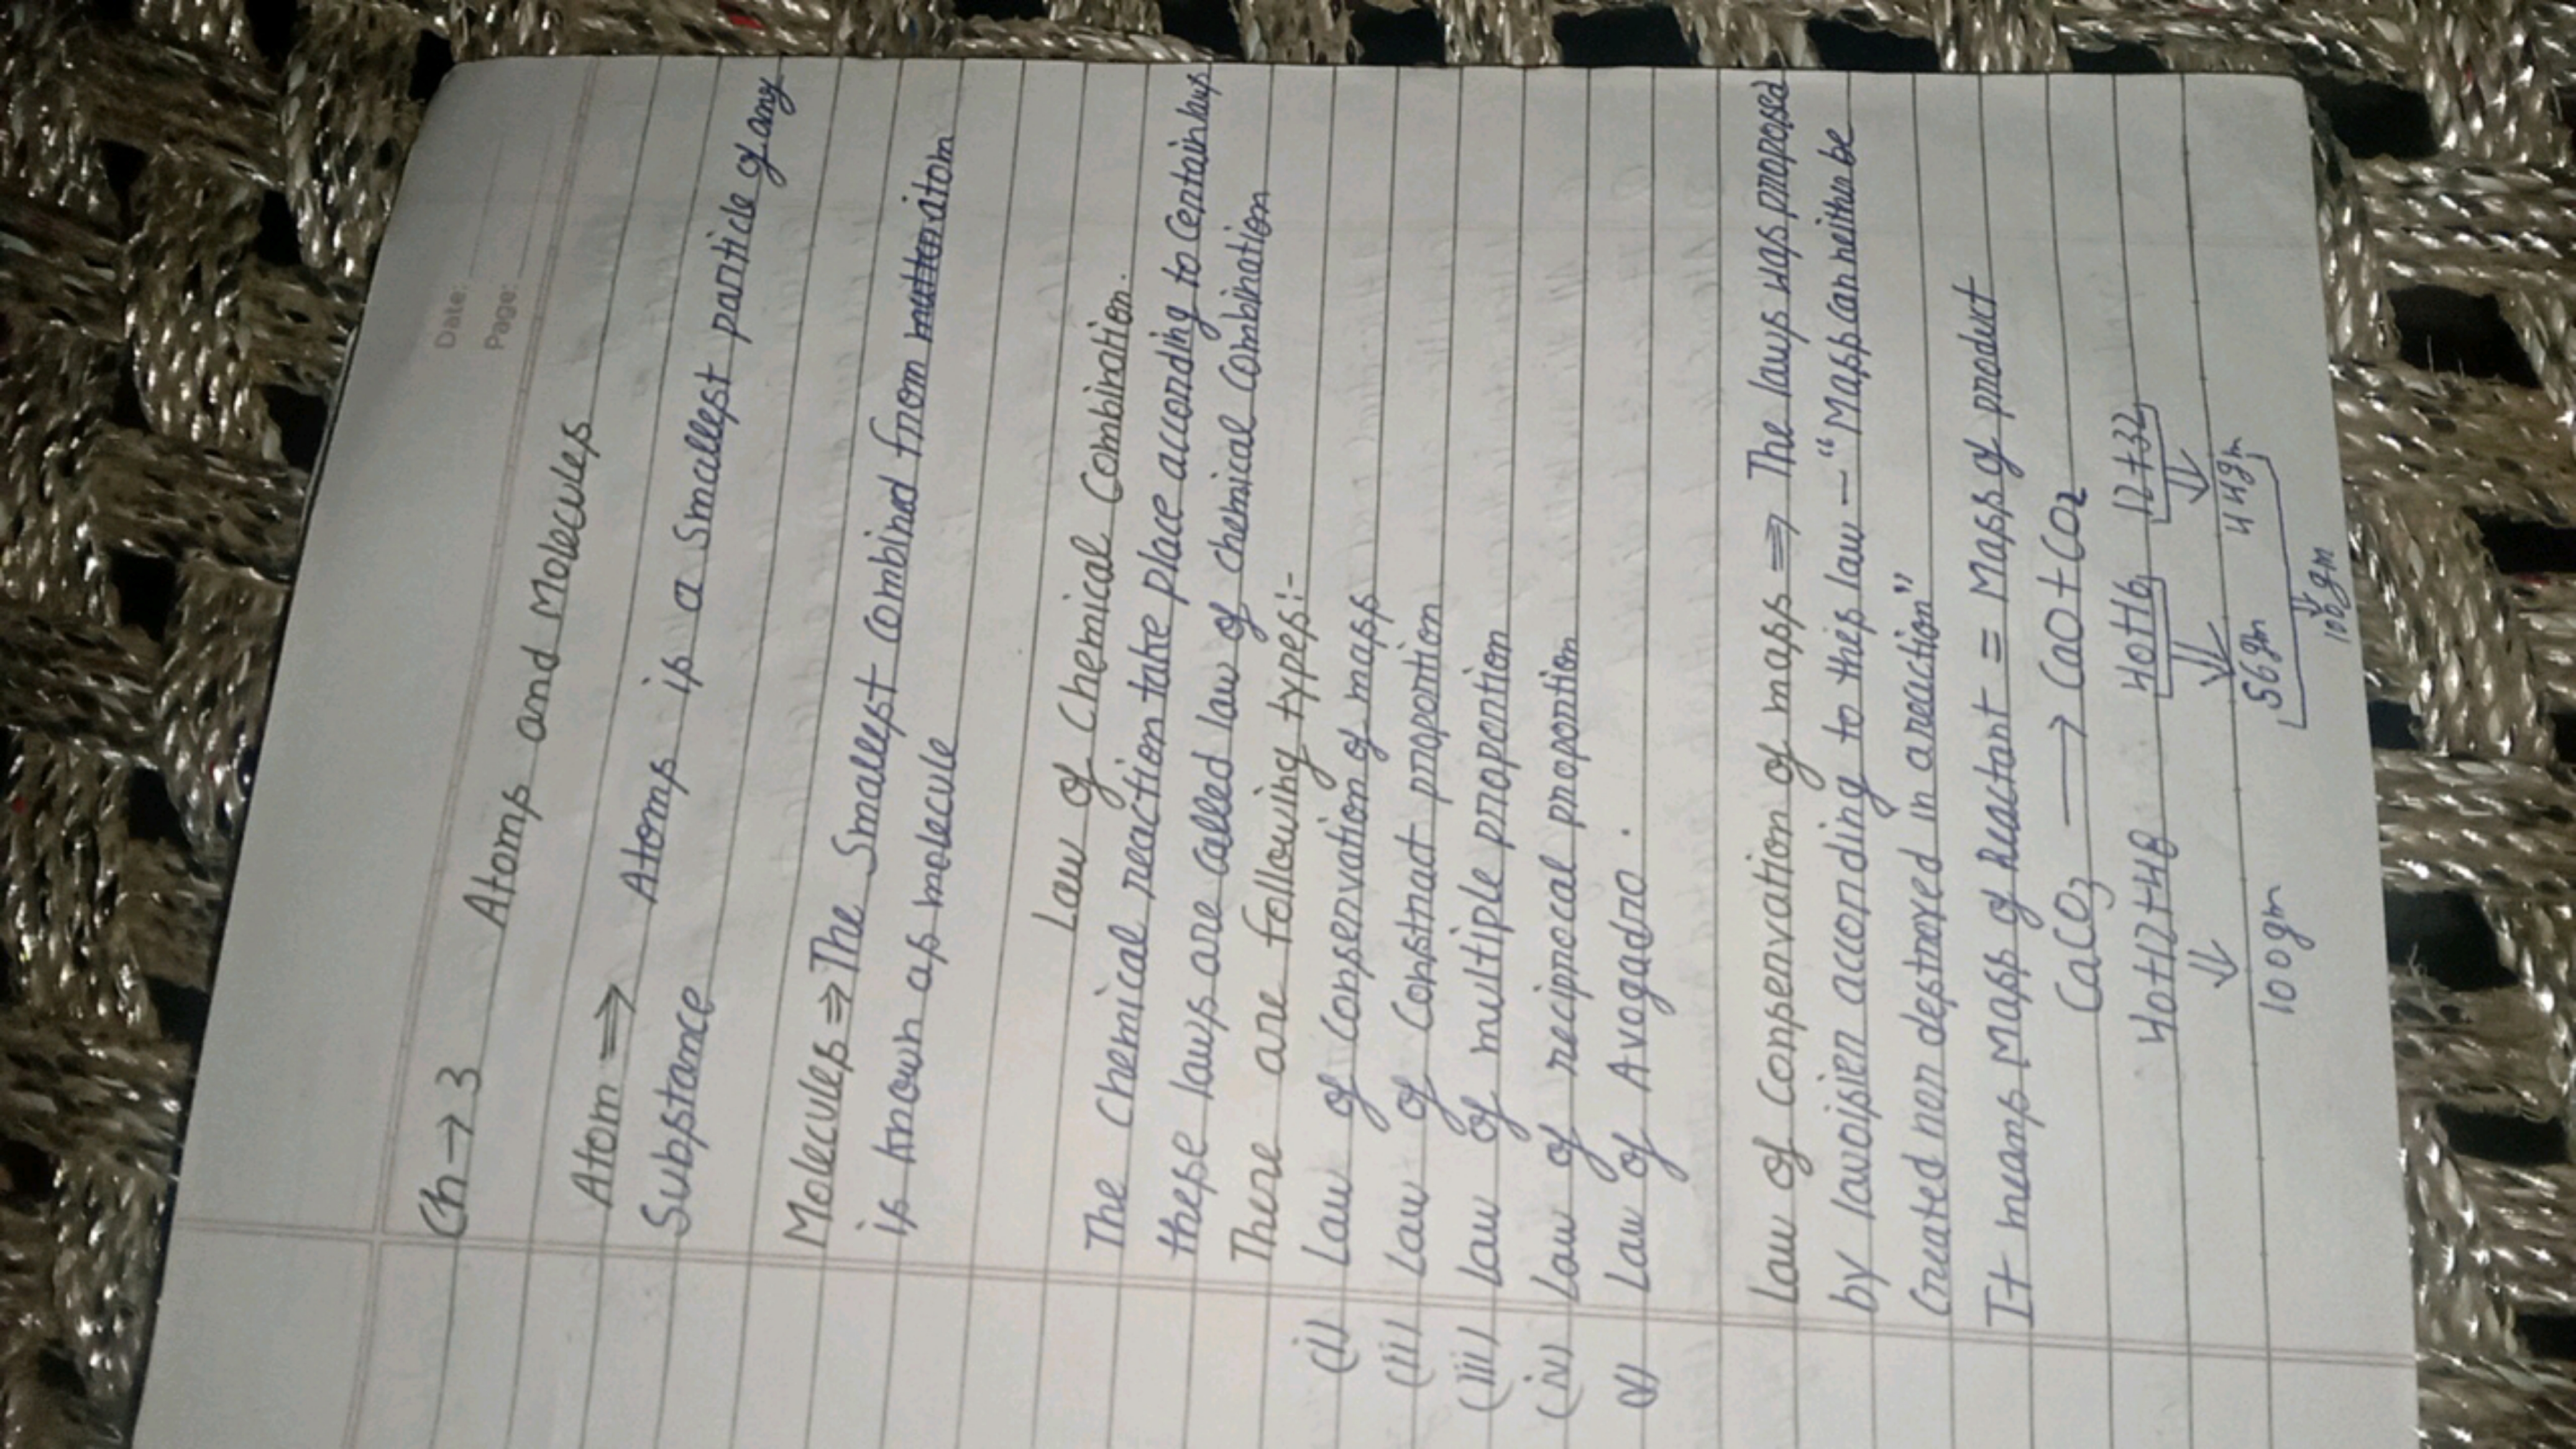 Date:
Page:
Ch→3 Atoms and Molecules
Atom ⇒ Atoms is a Smallest particle of any
Substance
Molecules ⇒ The Smallest combind from atom
is known as molecule
Law of Chemical Combination.
The Chemical reaction take place according to Certain laws
these laws are called law of chemical combination
There are following types:-
(i) Law of conservation of mass
(ii) Law of Constnact proportion
(iii) Law of multiple proportion
(iv) Law of reciprocal proportion
(v) Law of Avogadro.
Law of conservation of mass ⇒ The laws was proposed
by lavoisier according to this law — "Mass can neither be
Created nor destroyed in a reaction"
It means Mass of Reactant = Mass of product
CaCO3 → CaO + CO2
40+12+48 40+16 12+32
↓ ↓ ↓
100gm 56gm 44gm
↓
100gm